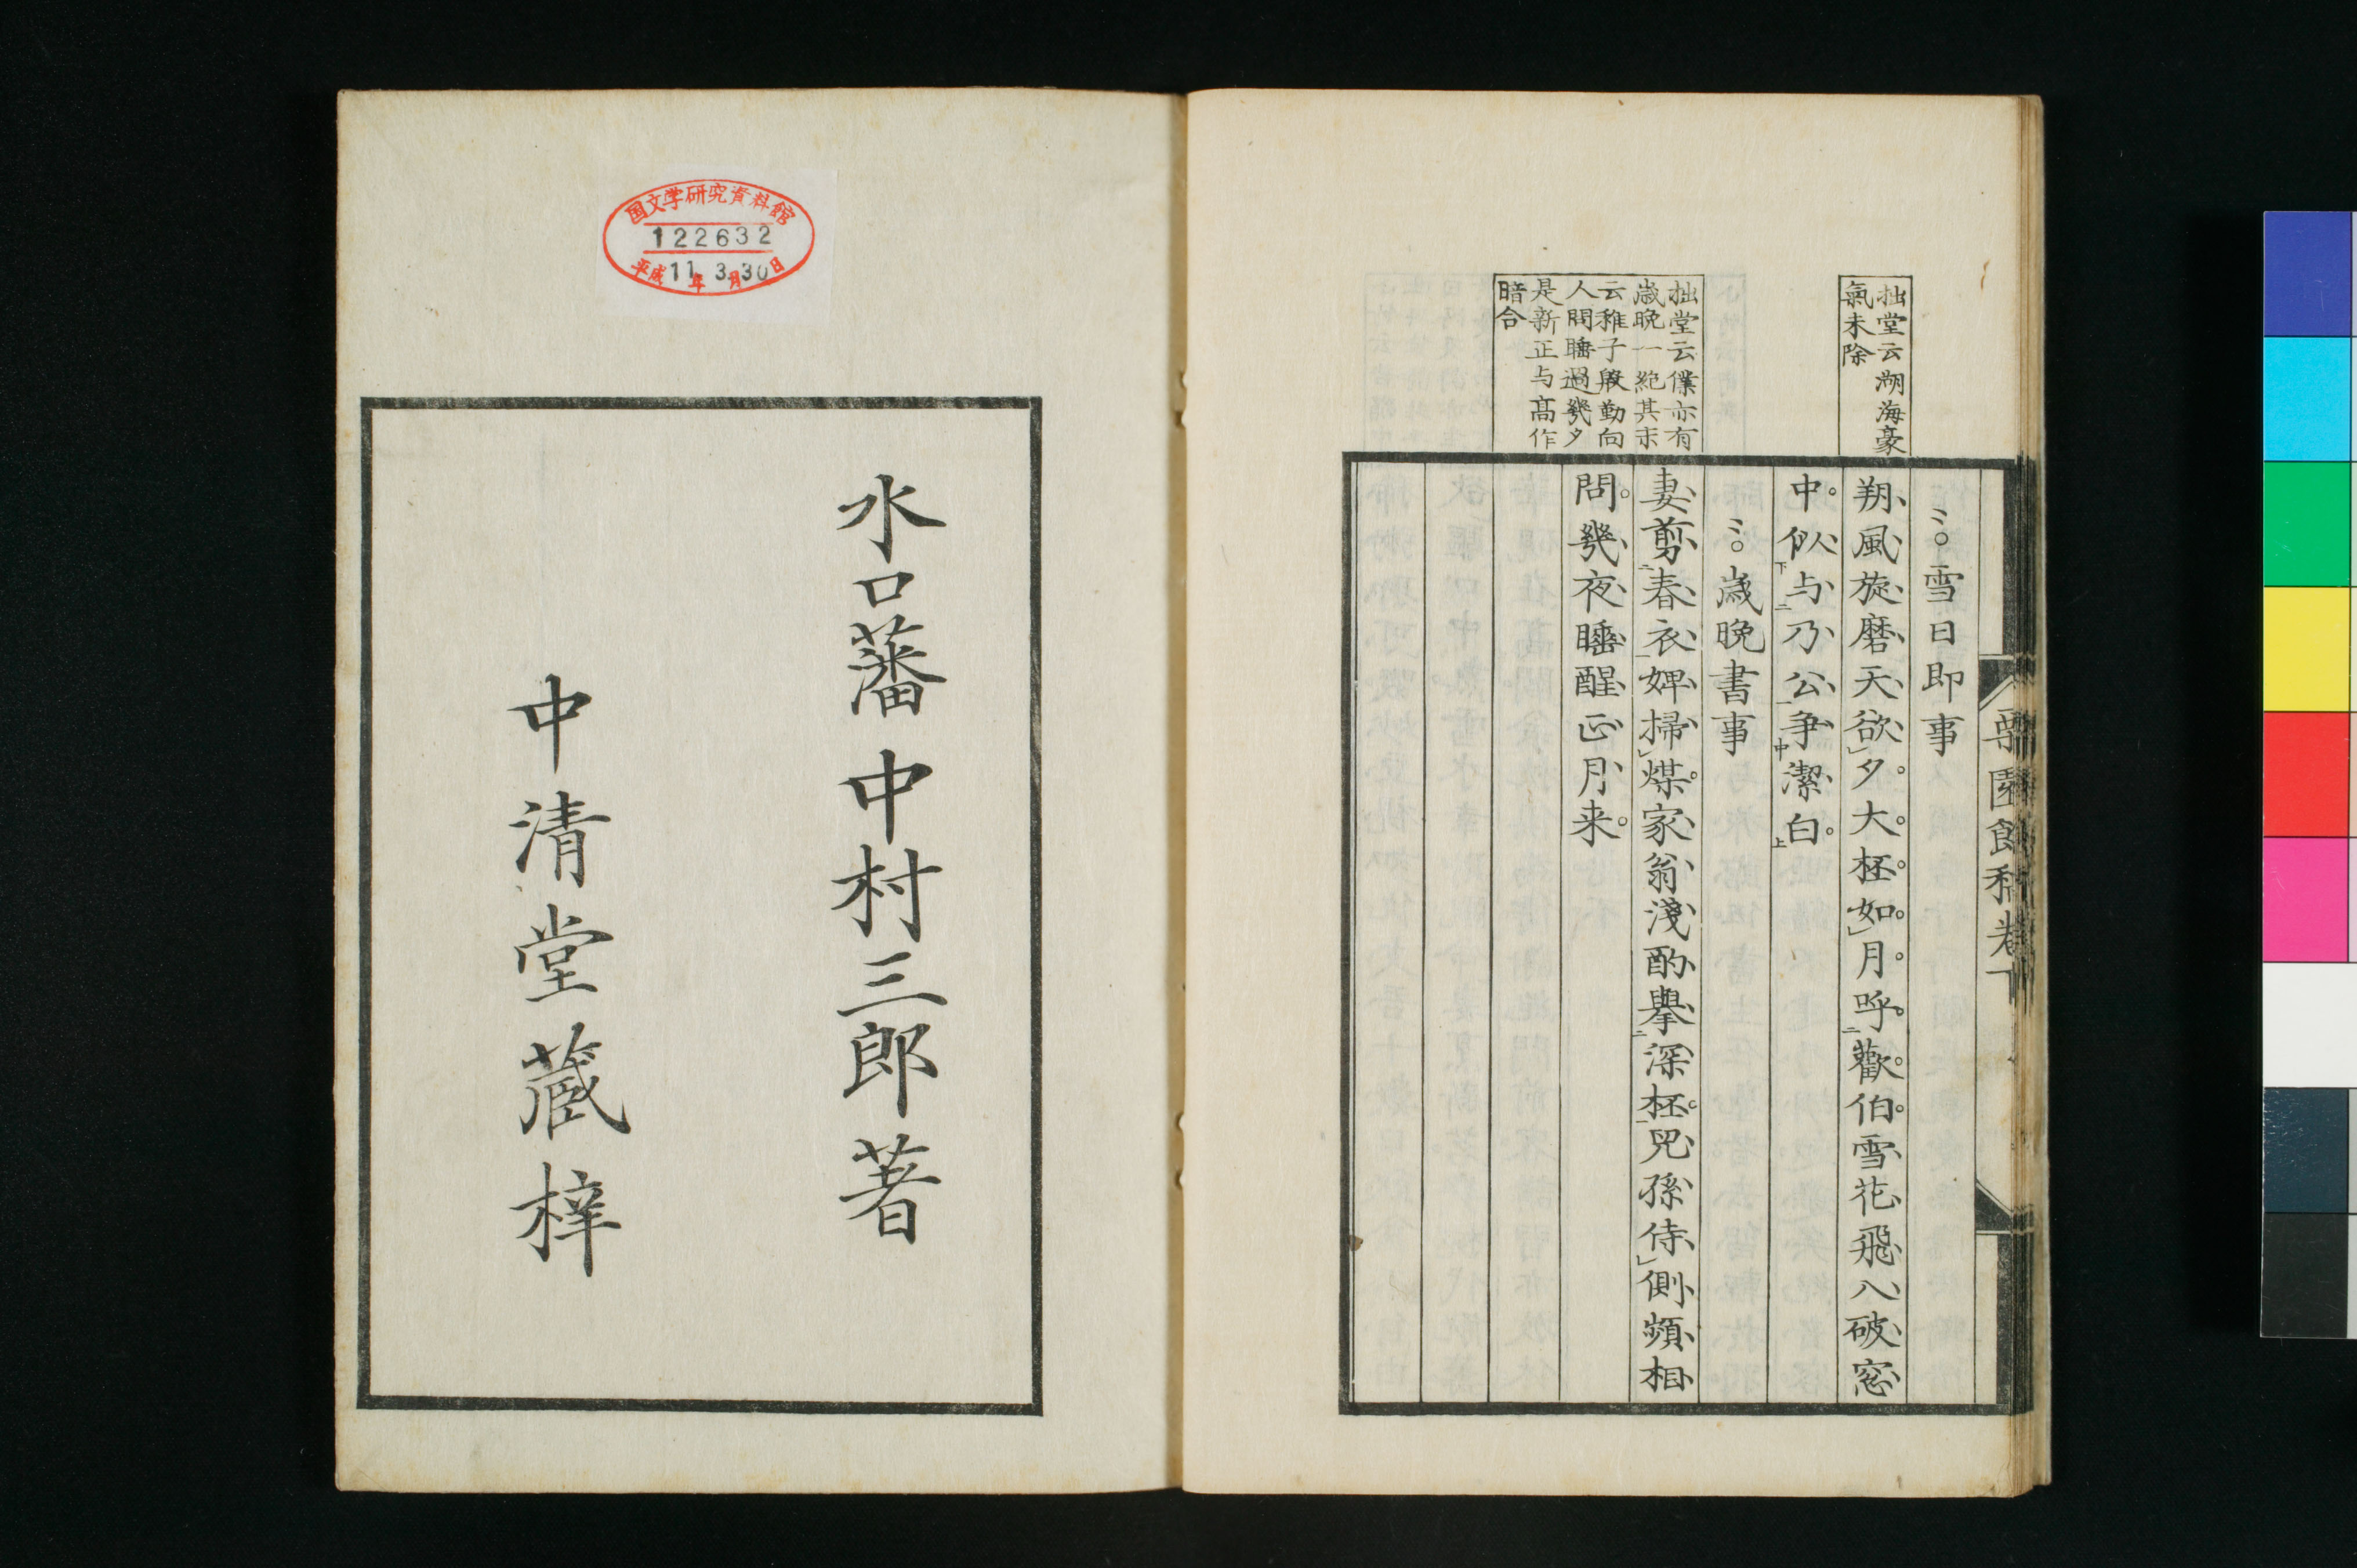 拙堂云湖海豪
氣未除
拙堂云僕亦有
歳晩一絶其末
云稚子殷勤向
人問睡過幾夕
是新正与髙作
暗合
雪日即事
朔風旋磨天欲夕大柸如月呼歡伯雪花飛入破窓
中似与乃公爭潔白
歳晩書事
妻剪春衣婢掃煤家翁淺酌擧深柸児孫侍側頻相
問幾夜睡醒正月来
水口藩 中村三郎 著
中清堂蔵梓
国文学研究資料館
122632
平成11年3月30日